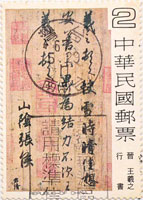 2
中華民國郵票
晉 王羲之
行書
羲之頓首快雪時晴佳想
安善未果為結力不次王
羲之頓首
山陰張侯